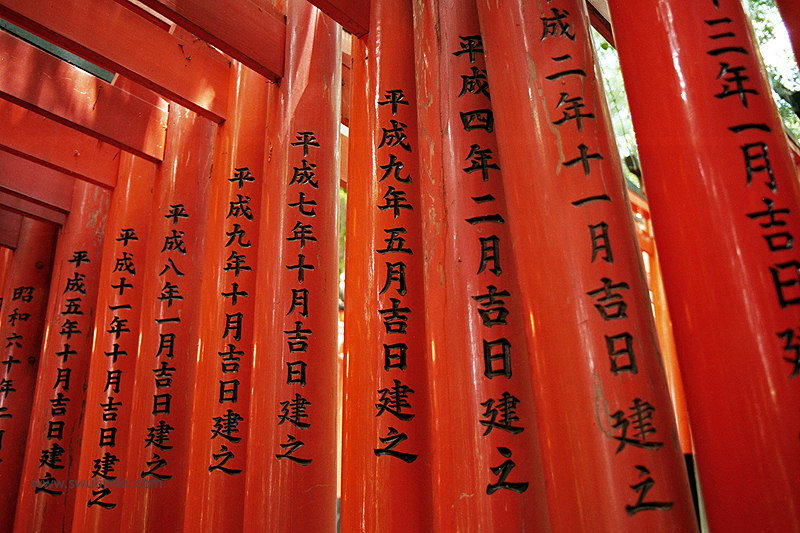 昭和六十年二
平成五年十月吉日建之
平成十一年十月吉日建之
平成八年一月吉日建之
平成九年十月吉日建之
平成七年十月吉日建之
平成九年五月吉日建之
平成四年二月吉日建之
成二年十一月吉日建之
十三年一月吉日建